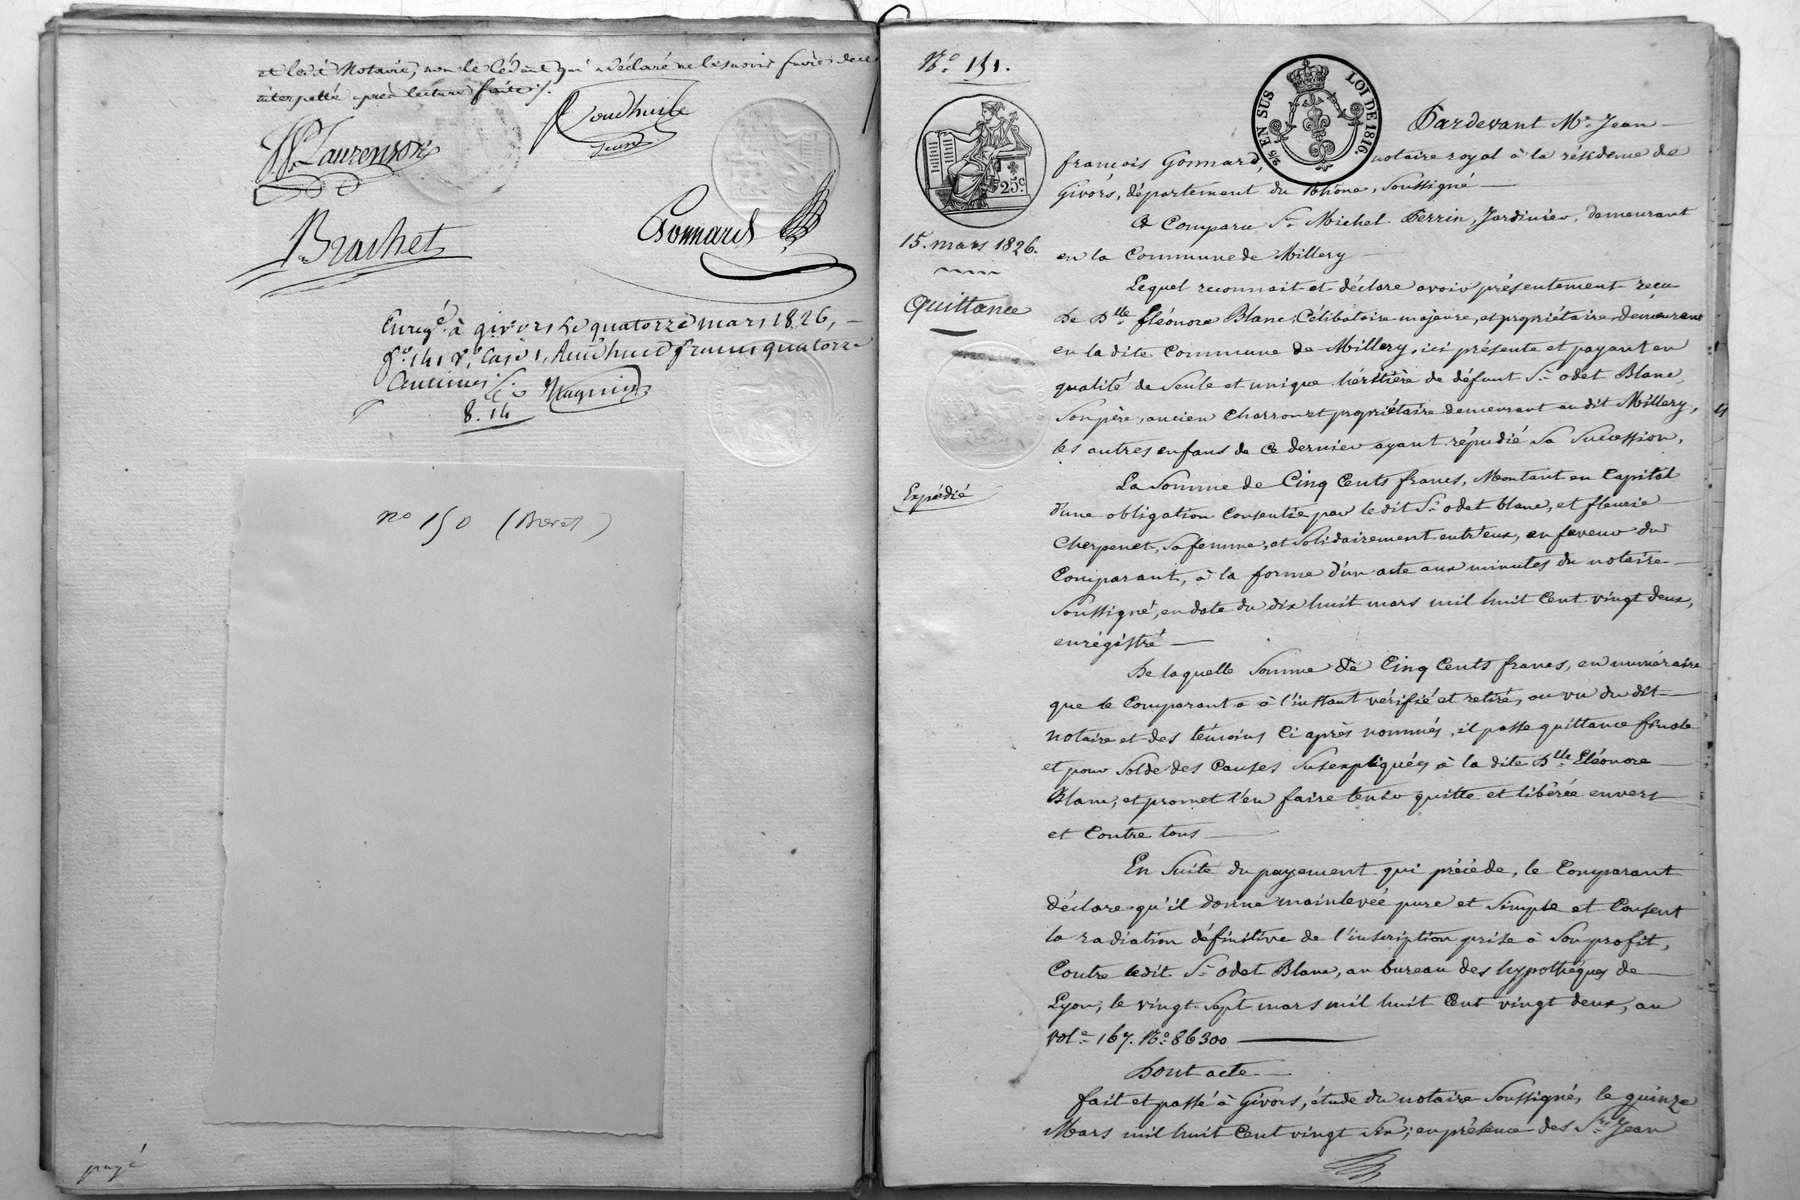 et le dt Notaire, non le cédant qui a déclaré ne le savoir faire de ce
interpellé après lecture faite /.
Laurenson
Brachet
Gonnard
Enregé à givors le quatorze mars 1826,
fo 141 Vo Case 1, huit francs quatorze
Centimes
8. 14
no 150 (Brevet)
payé
No 151.
15. mars 1826.
Quittance
Expédié
25c
25 EN SUS
LOI DE 1816.
Pardevant Me Jean
françois Gonnard, notaire royal à la résidence de
Givors, département du Rhône, soussigné
A Comparu Sr Michel Perrin, Jardinier, demeurant
en la Commune de Millery
Lequel reconnait et déclare avoir présentement reçu
De Dlle Eléonore Blanc, Célibataire majeure, et propriétaire, demeurant
en la dite Commune de Millery, ici présente et payant en
qualité de Seule et unique héritière de défunt Sr odet Blanc,
Son père, ancien Charron et propriétaire demeurant audit Millery,
les autres enfans de ce dernier ayant répudié sa Succession,
La Somme de Cinq Cents francs, Montant en Capital
d'une obligation Consentie par le dit Sr odet blanc, et fleurie
Cherpenet, sa femme, et Solidairement entr'eux, en faveur du
Comparant, à la forme d'un acte aux minutes du notaire
Soussigné, en date du dix huit mars mil huit Cent vingt deux,
enrégistré
De laquelle Somme de Cinq Cents francs, en numéraire
que le Comparant a à l'instant vérifié et retiré, au vu du dit
notaire et des témoins Ci après nommés, il passe quittance finale
et pour Solde des Causes Susexpliquées à la dite Dlle Eléonore
Blanc, et promet l'en faire tenir quitte et libérée envers
et Contre tous
En Suite du payement qui précède, le Comparant
déclare qu'il donne mainlevée pure et Simple et Consent
la radiation définitive de l'inscription prise à Son profit,
Contre ledit Sr odet Blanc, au bureau des hypothèques de
Lyon, le vingt Sept mars mil huit Cent vingt deux, au
vole 167. No 86300
Dont acte
fait et passé à Givors, étude du notaire Soussigné, le quinze
Mars mil huit Cent vingt Six; en présence des Srs Jean